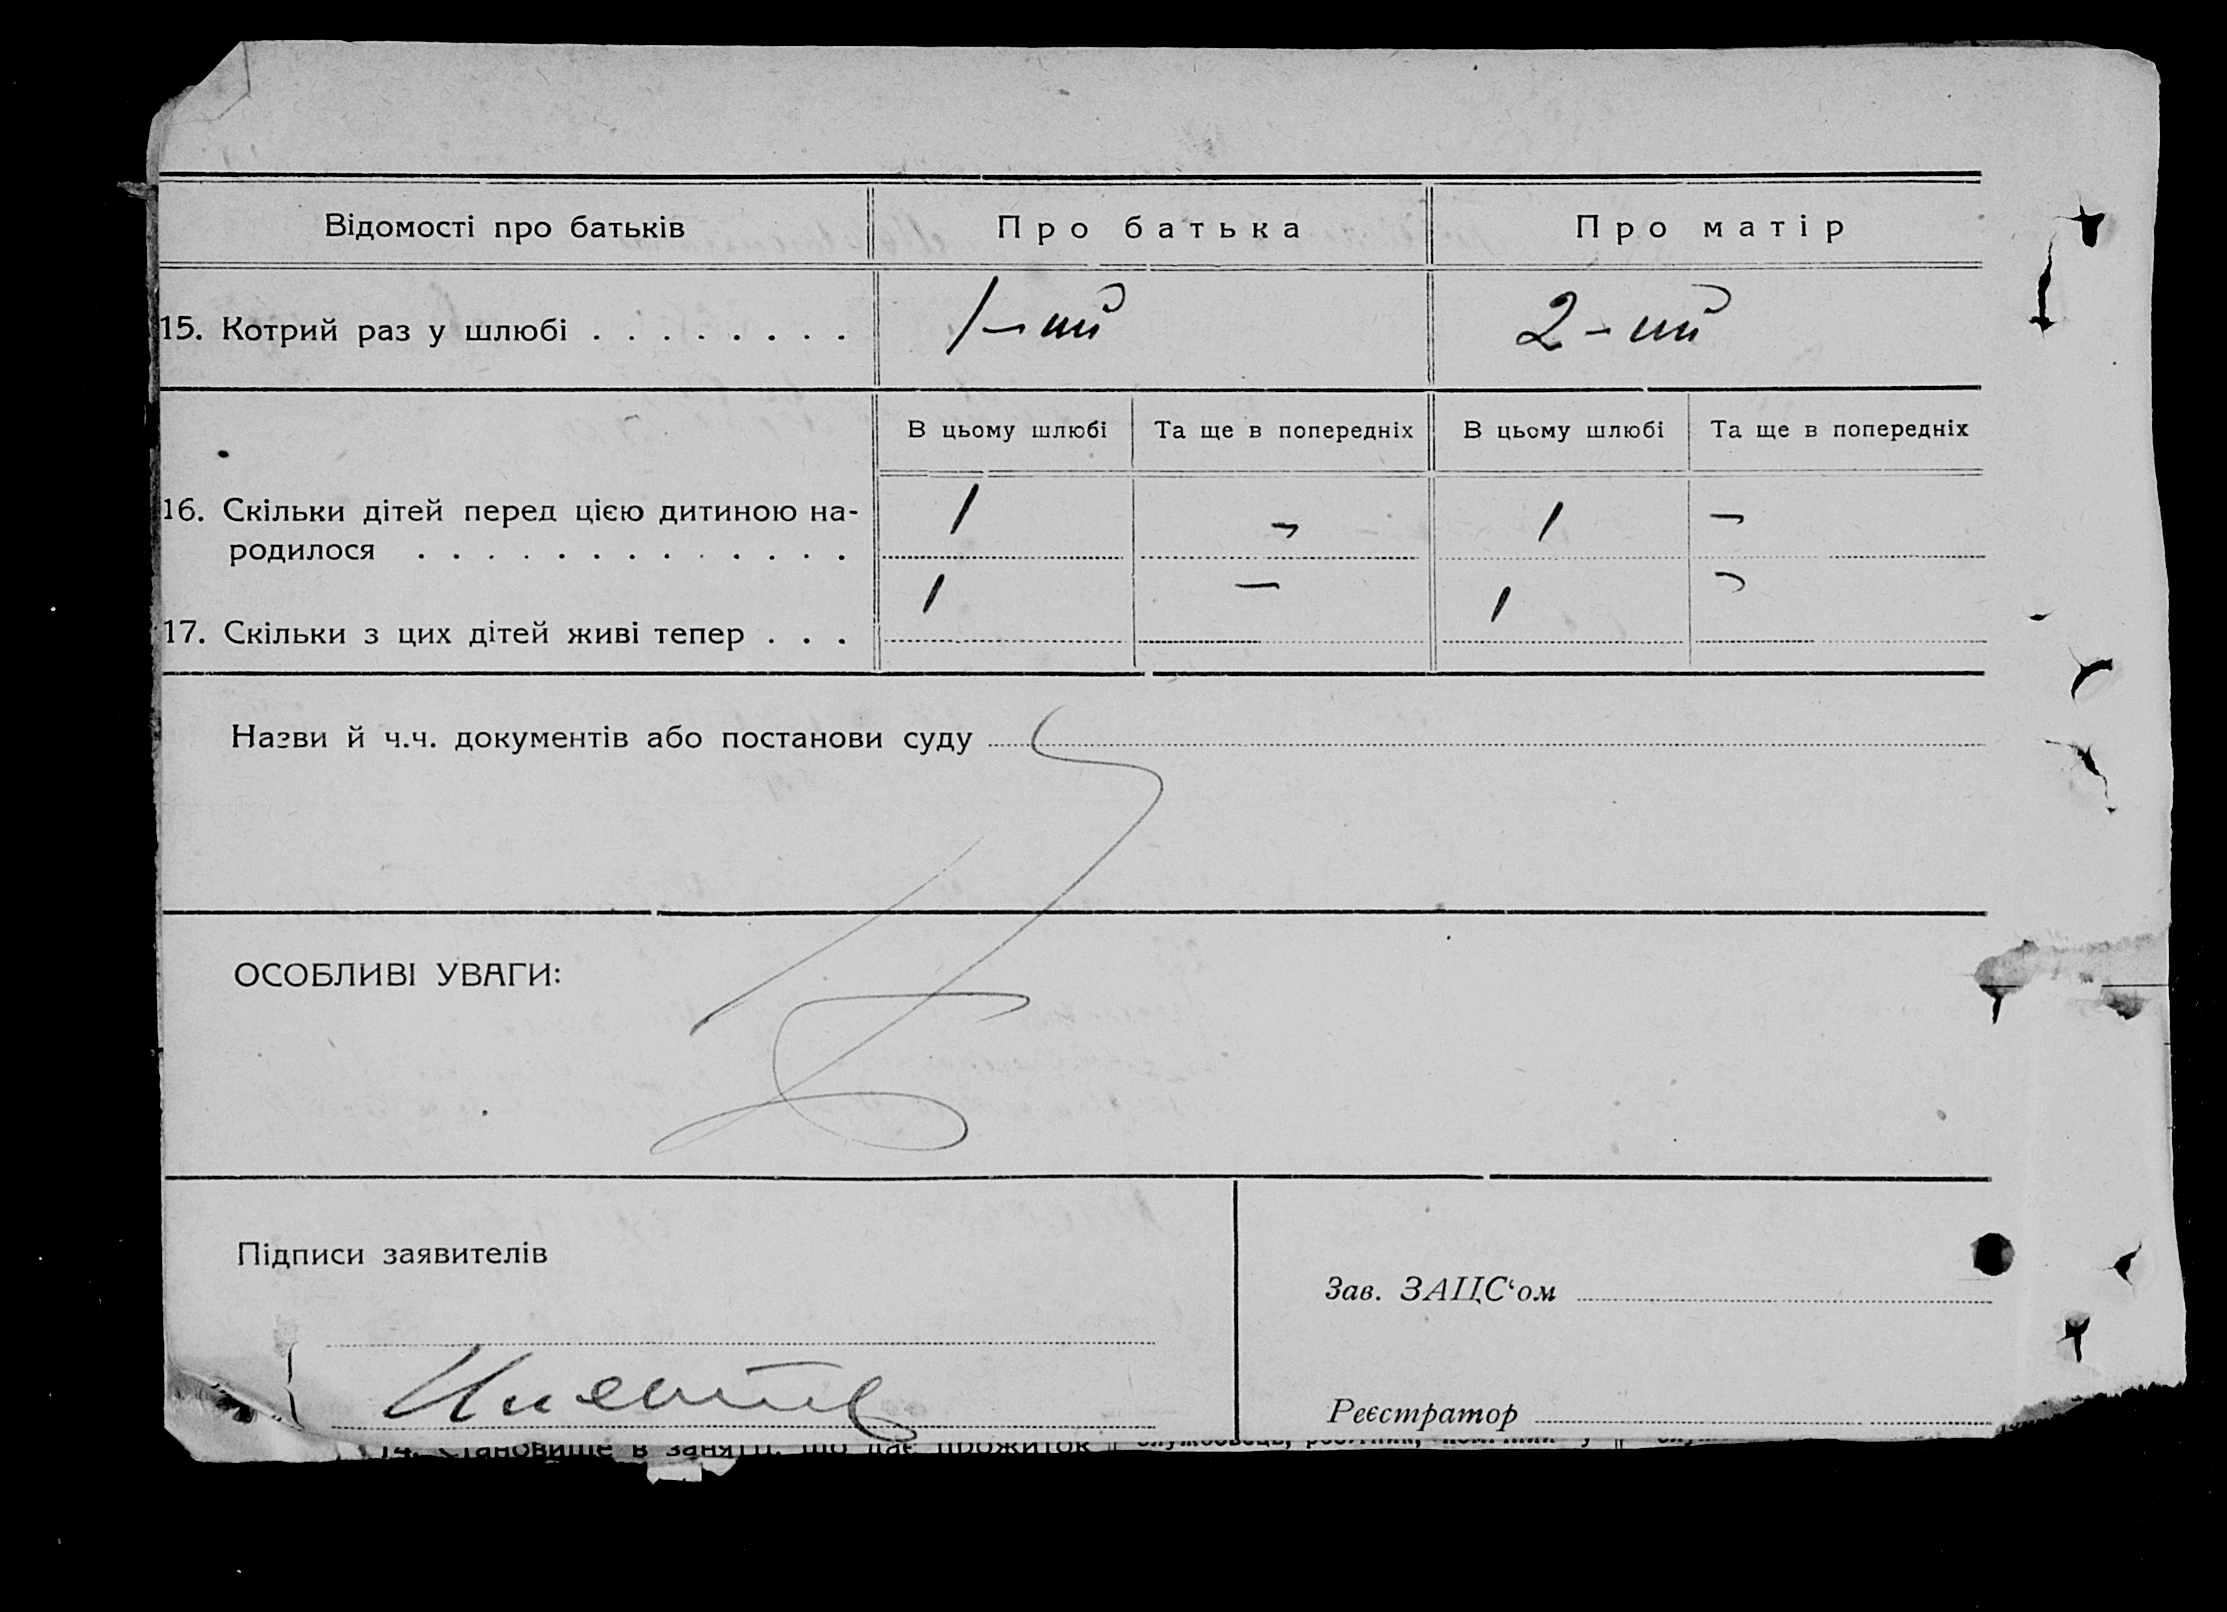 Відомості про батьків Про батька Про матір
15. Котрий раз у шлюбі . . . . . . . . 1-ий 2-ий
В цьому шлюбі Та ще в попередніх В цьому шлюбі Та ще в попередніх
16. Скільки дітей перед цією дитиною на- 1 - 1 -
родилося . . . . . . . . . . . . .
17. Скільки з цих дітей живі тепер . . . 1 - 1 -
Назви й ч.ч. документів або постанови суду
ОСОБЛИВІ УВАГИ:
Підписи заявителів
Зав. ЗАЦС‘ом
Реєстратор
14. Становище в занятті, що дає прожиток